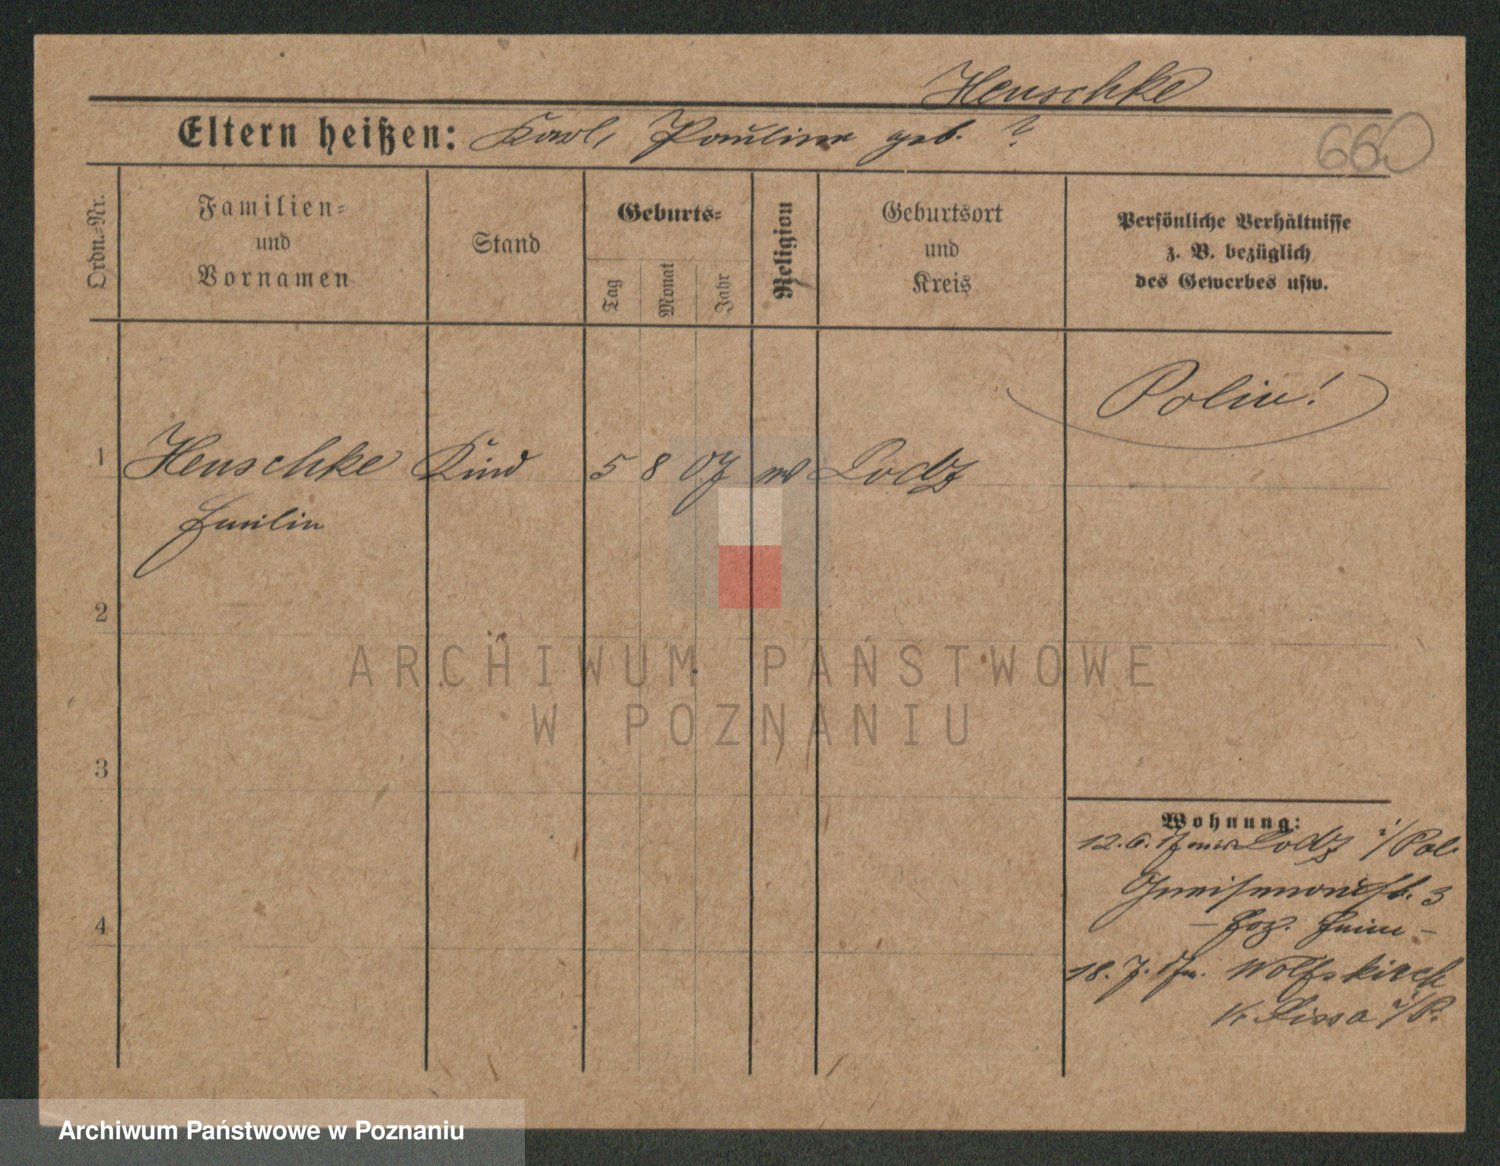 Heuschke
Eltern heißen: Karl, Pauline geb. ?
660
Ordn.-Nr.
Familien-
und
Vornamen
Stand
Geburts-
Tag
Monat
Jahr
Religion
Geburtsort
und
Kreis
Persönliche Verhältnisse
z. B. bezüglich
des Gewerbes usw.
Polin!
1 Heuschke Kind 5 8 07 Lodz
Emilie
2
3
4
Wohnung:
12. 6. 17 Lodz i/Pol.
Gneisenaustr. 3
18. 7. 17 Wolfskirch
Kr Lissa i/P.
ARCHIWUM PAŃSTWOWE
W POZNANIU
Archiwum Państwowe w Poznaniu